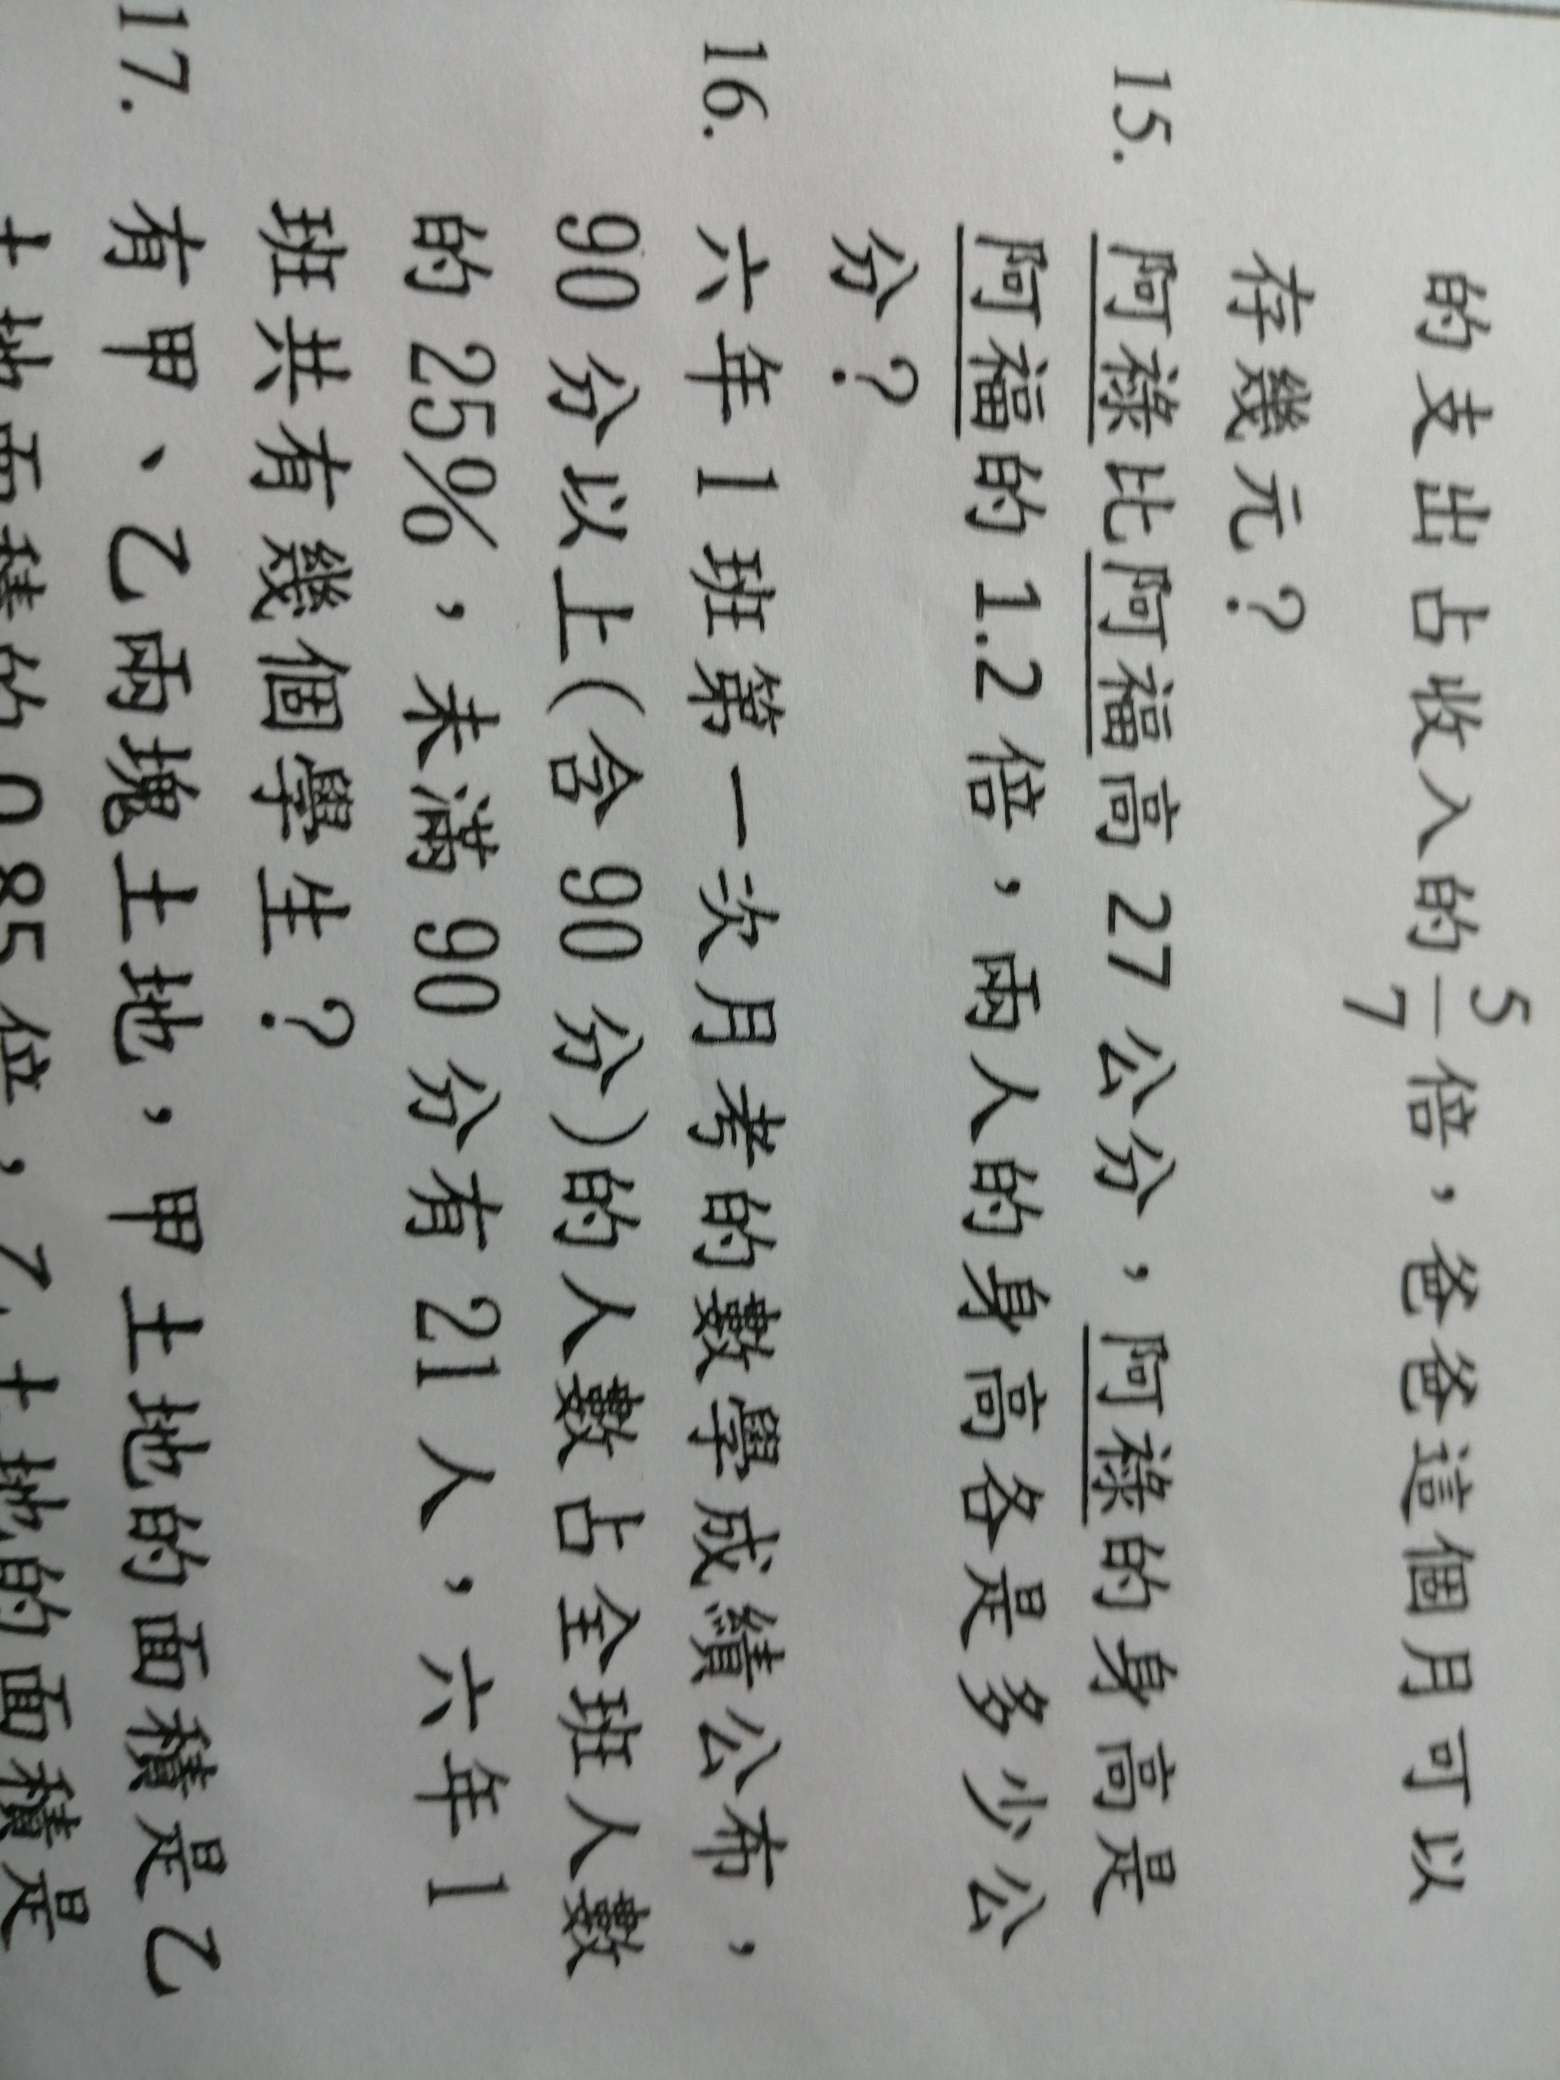 的支出占收入的5/7倍，爸爸這個月可以
存幾元？
15. 阿祿比阿福高 27 公分，阿祿的身高是
阿福的 1.2 倍，兩人的身高各是多少公
分？
16. 六年 1 班第一次月考的數學成績公布，
90 分以上(含 90 分)的人數占全班人數
的 25%，未滿 90 分有 21 人，六年 1
班共有幾個學生？
17. 有甲、乙兩塊土地，甲土地的面積是乙
土地面積的 0.85 倍，乙土地的面積是